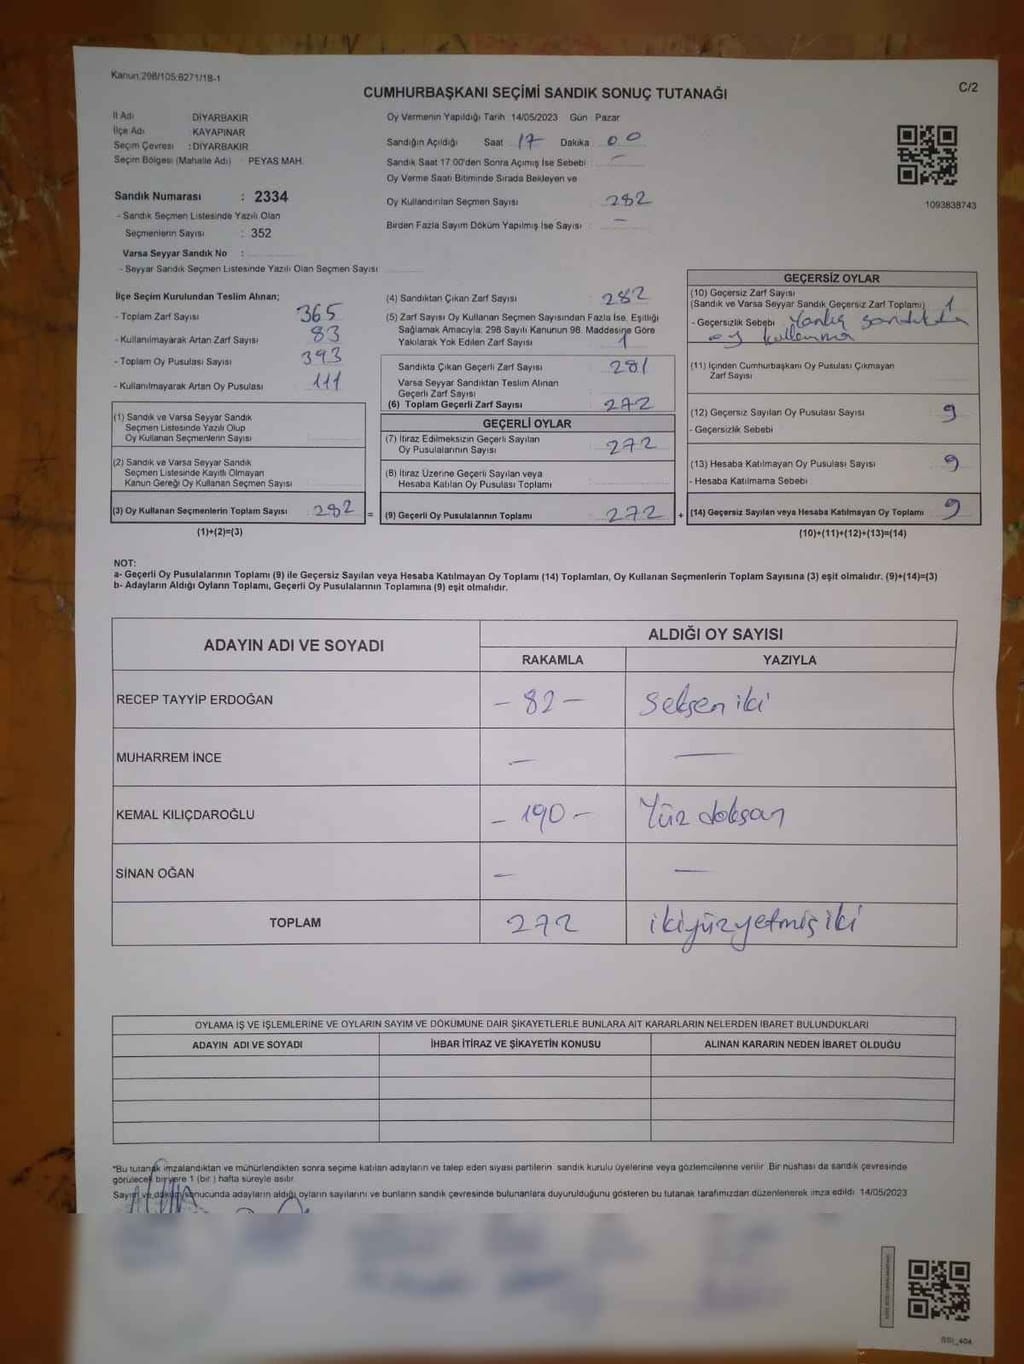 Kanun:298/105;6271/18-1
CUMHURBAŞKANI SEÇİMİ SANDIK SONUÇ TUTANAĞI
C/2
İl Adı DİYARBAKIR
İlçe Adı KAYAPINAR
Seçim Çevresi : DİYARBAKIR
Seçim Bölgesi (Mahalle Adı) : PEYAS MAH.
Sandık Numarası : 2334
- Sandık Seçmen Listesinde Yazılı Olan
Seçmenlerin Sayısı : 352
Varsa Seyyar Sandık No :
- Seyyar Sandık Seçmen Listesinde Yazılı Olan Seçmen Sayısı
Oy Vermenin Yapıldığı Tarih 14/05/2023 Gün Pazar
Sandığın Açıldığı Saat 17 Dakika 00
Sandık Saat 17.00'den Sonra Açımış İse Sebebi —
Oy Verme Saati Bitiminde Sırada Bekleyen ve
Oy Kullandırılan Seçmen Sayısı 282
Birden Fazla Sayım Döküm Yapılmış İse Sayısı —
1093838743
İlçe Seçim Kurulundan Teslim Alınan;
- Toplam Zarf Sayısı 365
- Kullanılmayarak Artan Zarf Sayısı 83
- Toplam Oy Pusulası Sayısı 393
- Kullanılmayarak Artan Oy Pusulası 111
(1) Sandık ve Varsa Seyyar Sandık
Seçmen Listesinde Yazılı Olup
Oy Kullanan Seçmenlerin Sayısı
(2) Sandık ve Varsa Seyyar Sandık
Seçmen Listesinde Kayıtlı Olmayan
Kanun Gereği Oy Kullanan Seçmen Sayısı
(3) Oy Kullanan Seçmenlerin Toplam Sayısı 282 =
(1)+(2)=(3)
(4) Sandıktan Çıkan Zarf Sayısı 282
(5) Zarf Sayısı Oy Kullanan Seçmen Sayısından Fazla İse, Eşitliği
Sağlamak Amacıyla; 298 Sayılı Kanunun 98. Maddesine Göre
Yakılarak Yok Edilen Zarf Sayısı 1
Sandıkta Çıkan Geçerli Zarf Sayısı 281
Varsa Seyyar Sandıktan Teslim Alınan
Geçerli Zarf Sayısı
(6) Toplam Geçerli Zarf Sayısı 272
GEÇERLİ OYLAR
(7) İtiraz Edilmeksizin Geçerli Sayılan
Oy Pusulalarının Sayısı 272
(8) İtiraz Üzerine Geçerli Sayılan veya
Hesaba Katılan Oy Pusulası Toplamı
(9) Geçerli Oy Pusulalarının Toplamı 272 +
GEÇERSİZ OYLAR
(10) Geçersiz Zarf Sayısı
(Sandık ve Varsa Seyyar Sandık Geçersiz Zarf Toplamı) 1
- Geçersizlik Sebebi Yanlış sandıkda
oy kullanma
(11) İçinden Cumhurbaşkanı Oy Pusulası Çıkmayan
Zarf Sayısı
(12) Geçersiz Sayılan Oy Pusulası Sayısı 9
- Geçersizlik Sebebi
(13) Hesaba Katılmayan Oy Pusulası Sayısı 9
- Hesaba Katılmama Sebebi
(14) Geçersiz Sayılan veya Hesaba Katılmayan Oy Toplamı 9
(10)+(11)+(12)+(13)=(14)
NOT:
a- Geçerli Oy Pusulalarının Toplamı (9) ile Geçersiz Sayılan veya Hesaba Katılmayan Oy Toplamı (14) Toplamları, Oy Kullanan Seçmenlerin Toplam Sayısına (3) eşit olmalıdır. (9)+(14)=(3)
b- Adayların Aldığı Oyların Toplamı, Geçerli Oy Pusulalarının Toplamına (9) eşit olmalıdır.
ADAYIN ADI VE SOYADI
ALDIĞI OY SAYISI
RAKAMLA YAZIYLA
RECEP TAYYİP ERDOĞAN - 82 - Seksen iki
MUHARREM İNCE — —
KEMAL KILIÇDAROĞLU - 190 - Yüz doksan
SİNAN OĞAN — —
TOPLAM 272 ikiyüzyetmiş iki
OYLAMA İŞ VE İŞLEMLERİNE VE OYLARIN SAYIM VE DÖKÜMÜNE DAİR ŞİKAYETLERLE BUNLARA AİT KARARLARIN NELERDEN İBARET BULUNDUKLARI
ADAYIN ADI VE SOYADI İHBAR İTİRAZ VE ŞİKAYETİN KONUSU ALINAN KARARIN NEDEN İBARET OLDUĞU
*Bu tutanak imzalandıktan ve mühürlendikten sonra seçime katılan adayların ve talep eden siyasi partilerin sandık kurulu üyelerine veya gözlemcilerine verilir. Bir nüshası da sandık çevresinde
görülecek bir yere 1 (bir) hafta süreyle asılır.
Sayım ve döküm sonucunda adayların aldığı oyların sayılarını ve bunların sandık çevresinde bulunanlara duyurulduğunu gösteren bu tutanak tarafımızdan düzenlenerek imza edildi. 14/05/2023